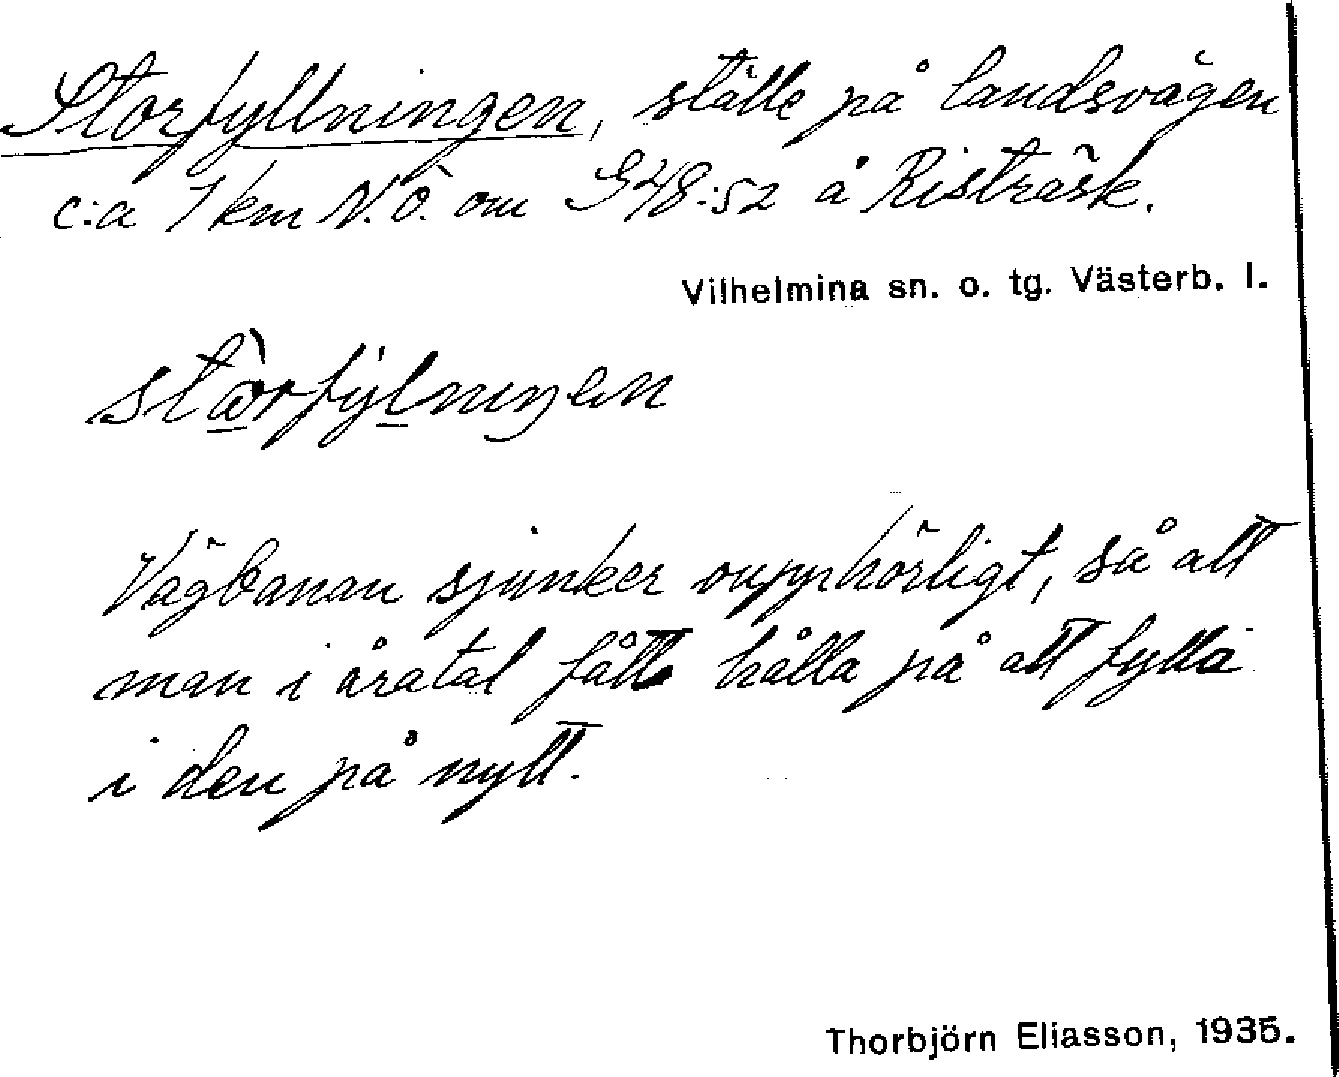 Storfyllningen, ställe på landsvägen
c:a 1 km N.Ö. om G48:52 å Risträsk.
Vilhelmina sn. o. tg. Västerb. l.
Vägbanan sjunker oupphörligt, så att
man i åratal fått hålla på att fylla
i den på nytt.
Thorbjörn Eliasson, 1935.